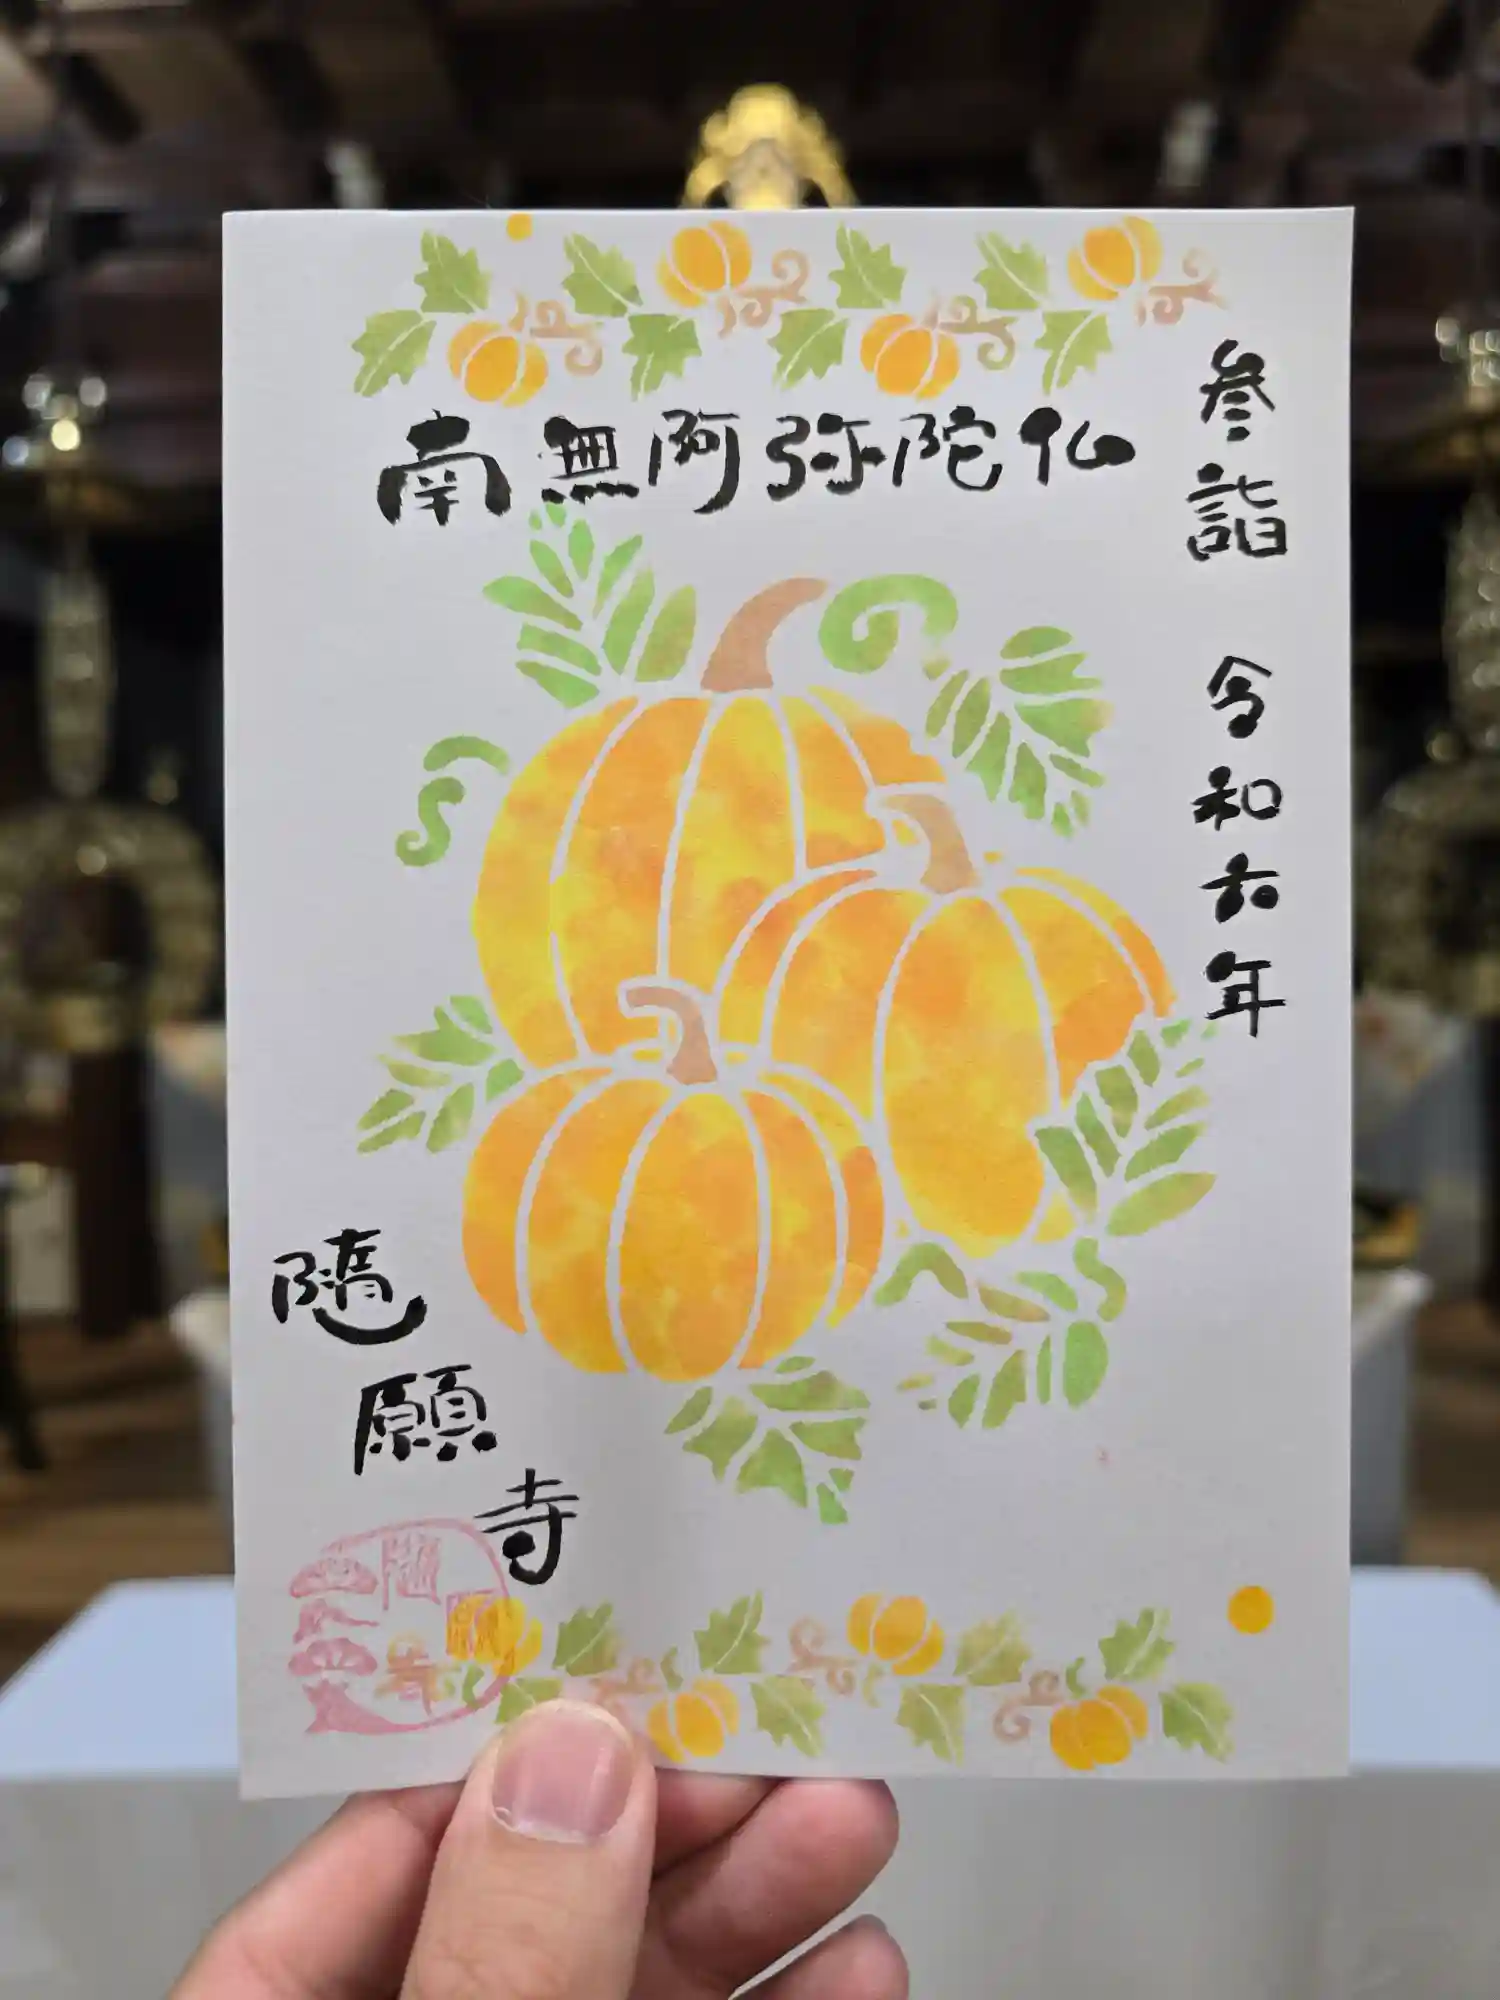 南無阿弥陀仏
参詣 令和六年
随願寺
随願寺